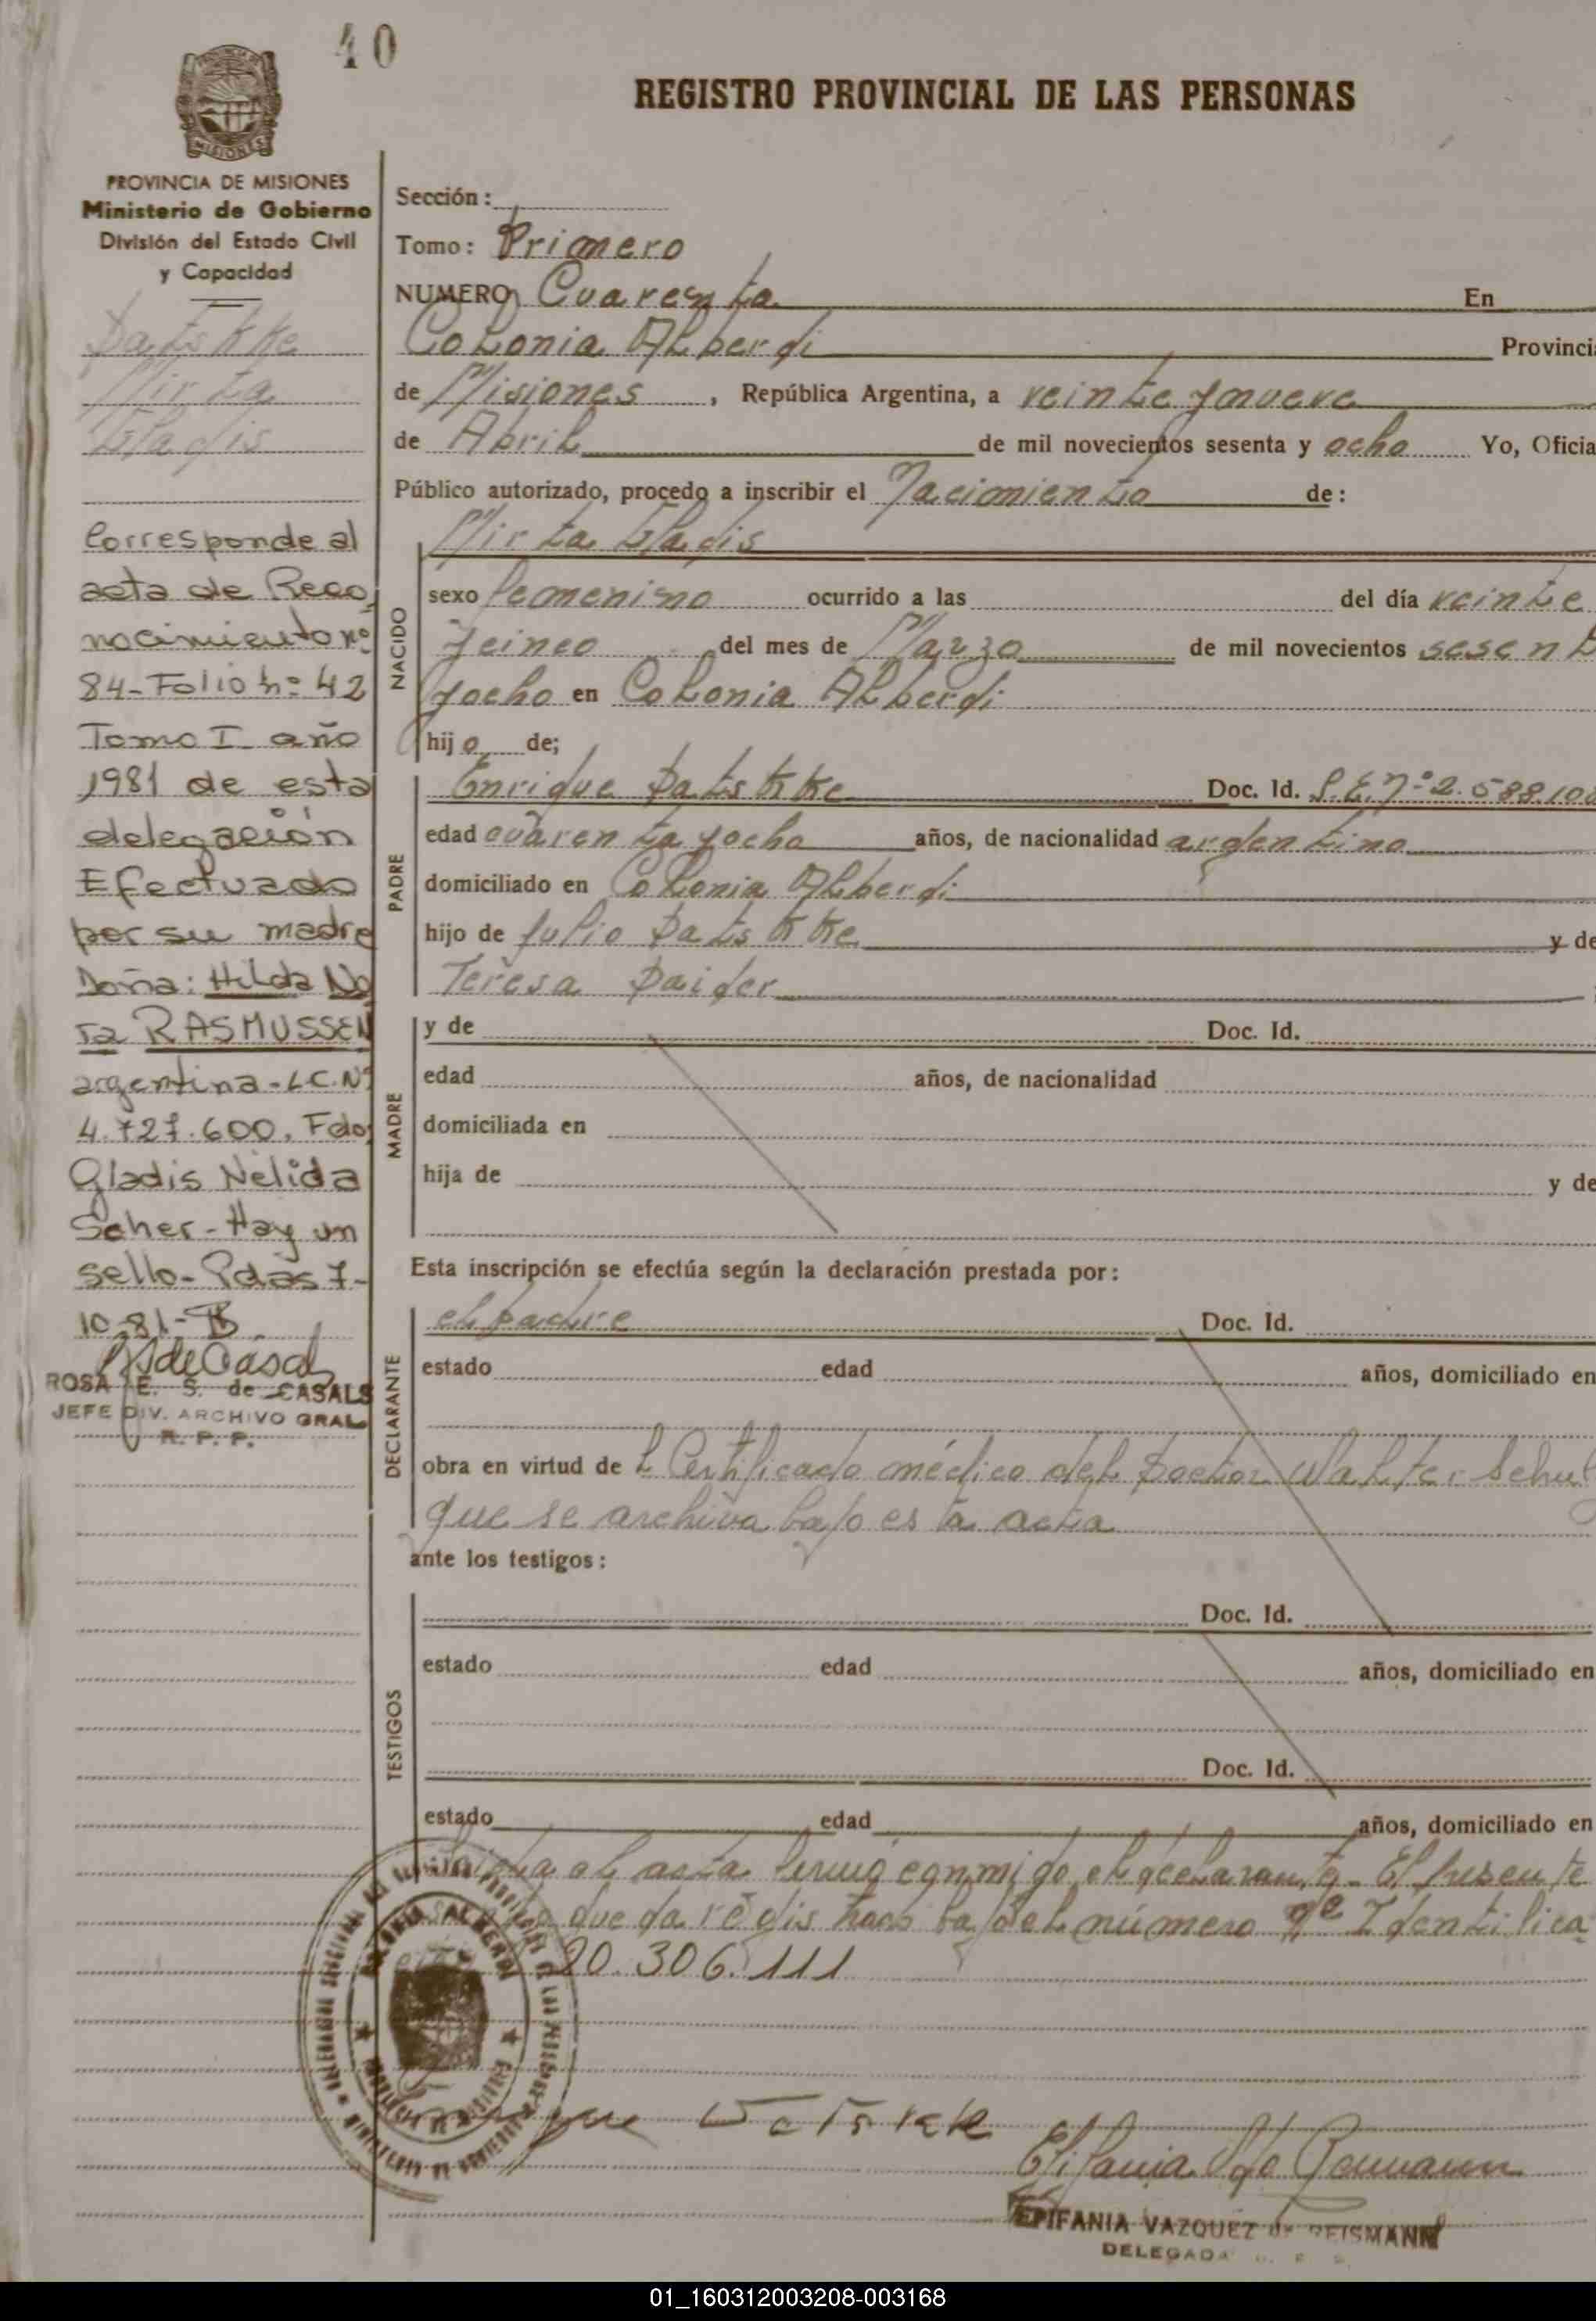 40
REGISTRO PROVINCIAL DE LAS PERSONAS
MISIONES
PROVINCIA DE MISIONES
Ministerio de Gobierno
División del Estado Civil
y Capacidad
Mirta
Corresponde al
acta de Reco
nocimiento nº
84-Folio nº 42
Tomo I año
1981 de esta
delegación
Efectuado
por su madre
Doña: Hilda No
ra RASMUSSEN
argentina-L.C.Nº
4.727.600. Fdo.
Gladis Nélida
Scher-Hay un
sello-Pdas 7-
10-81-B
ROSA E. S. de CASALS
JEFE DIV. ARCHIVO GRAL
R. P. P.
Sección:
Tomo: Primero
NUMERO Cuarenta En
Colonia Alberdi Provincia
de Misiones, República Argentina, a veinte y nueve
de Abril de mil novecientos sesenta y ocho Yo, Oficia
Público autorizado, procedo a inscribir el Nacimiento de:
Mirta Gladis
NACIDO
sexo femenino ocurrido a las del día veinte
y cinco del mes de Marzo de mil novecientos sesent
y ocho en Colonia Alberdi
hijo de;
PADRE
Enrique Doc. Id. Nº 2.588.10
edad cuarenta y ocho años, de nacionalidad argentino
domiciliado en Colonia Alberdi
hijo de Julio y de
Teresa
MADRE
y de Doc. Id.
edad años, de nacionalidad
domiciliada en
hija de y de
Esta inscripción se efectúa según la declaración prestada por:
DECLARANTE
el padre Doc. Id.
estado edad años, domiciliado en
obra en virtud de l Certificado médico del Doctor Walter Schul
que se archiva bajo esta acta
ante los testigos:
TESTIGOS
Doc. Id.
estado edad años, domiciliado en
Doc. Id.
estado edad años, domiciliado en
el acta firmó conmigo el declarante. El presente
queda registrado bajo el número de Identifica
20.306.111
COLONIA ALBERDI
EPIFANIA VAZQUEZ de REISMANN
DELEGADA
01_160312003208-003168